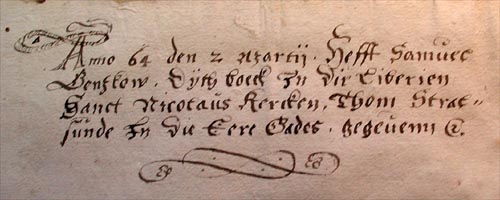 Anno 64 den 2 Martij. Hefft Samuel
Gentzkow. Dyth boeck In die Liberien
Sanct Nicolaus Kercken, Thom Strat=
sunde In die Eere Gades. gegevenn